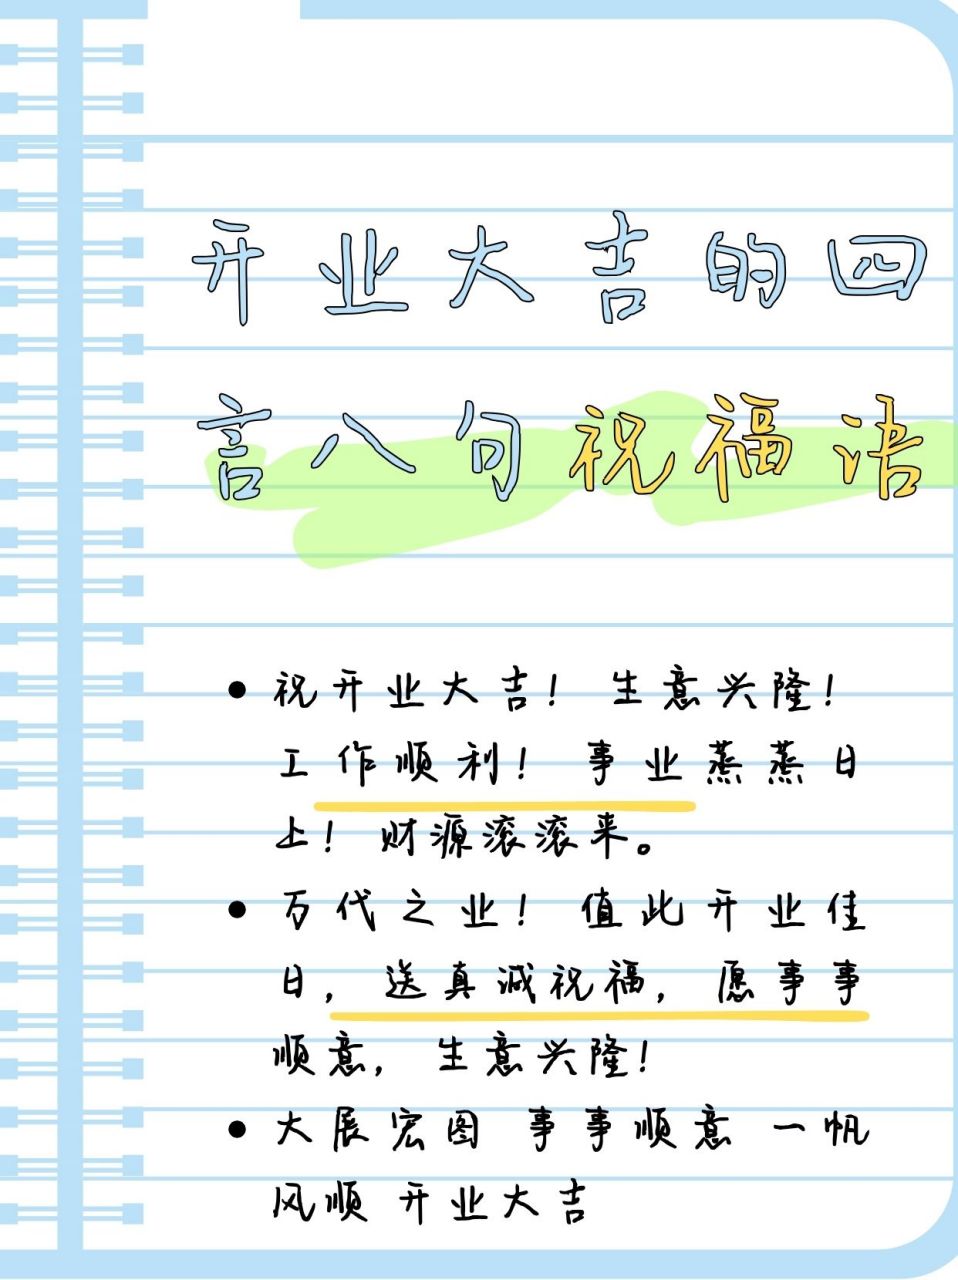 开业大吉的四
言八句祝福语
• 祝开业大吉！生意兴隆！
工作顺利！事业蒸蒸日
上！财源滚滚来。
• 万代之业！值此开业佳
日，送真诚祝福，愿事事
顺意，生意兴隆！
• 大展宏图 事事顺意 一帆
风顺 开业大吉